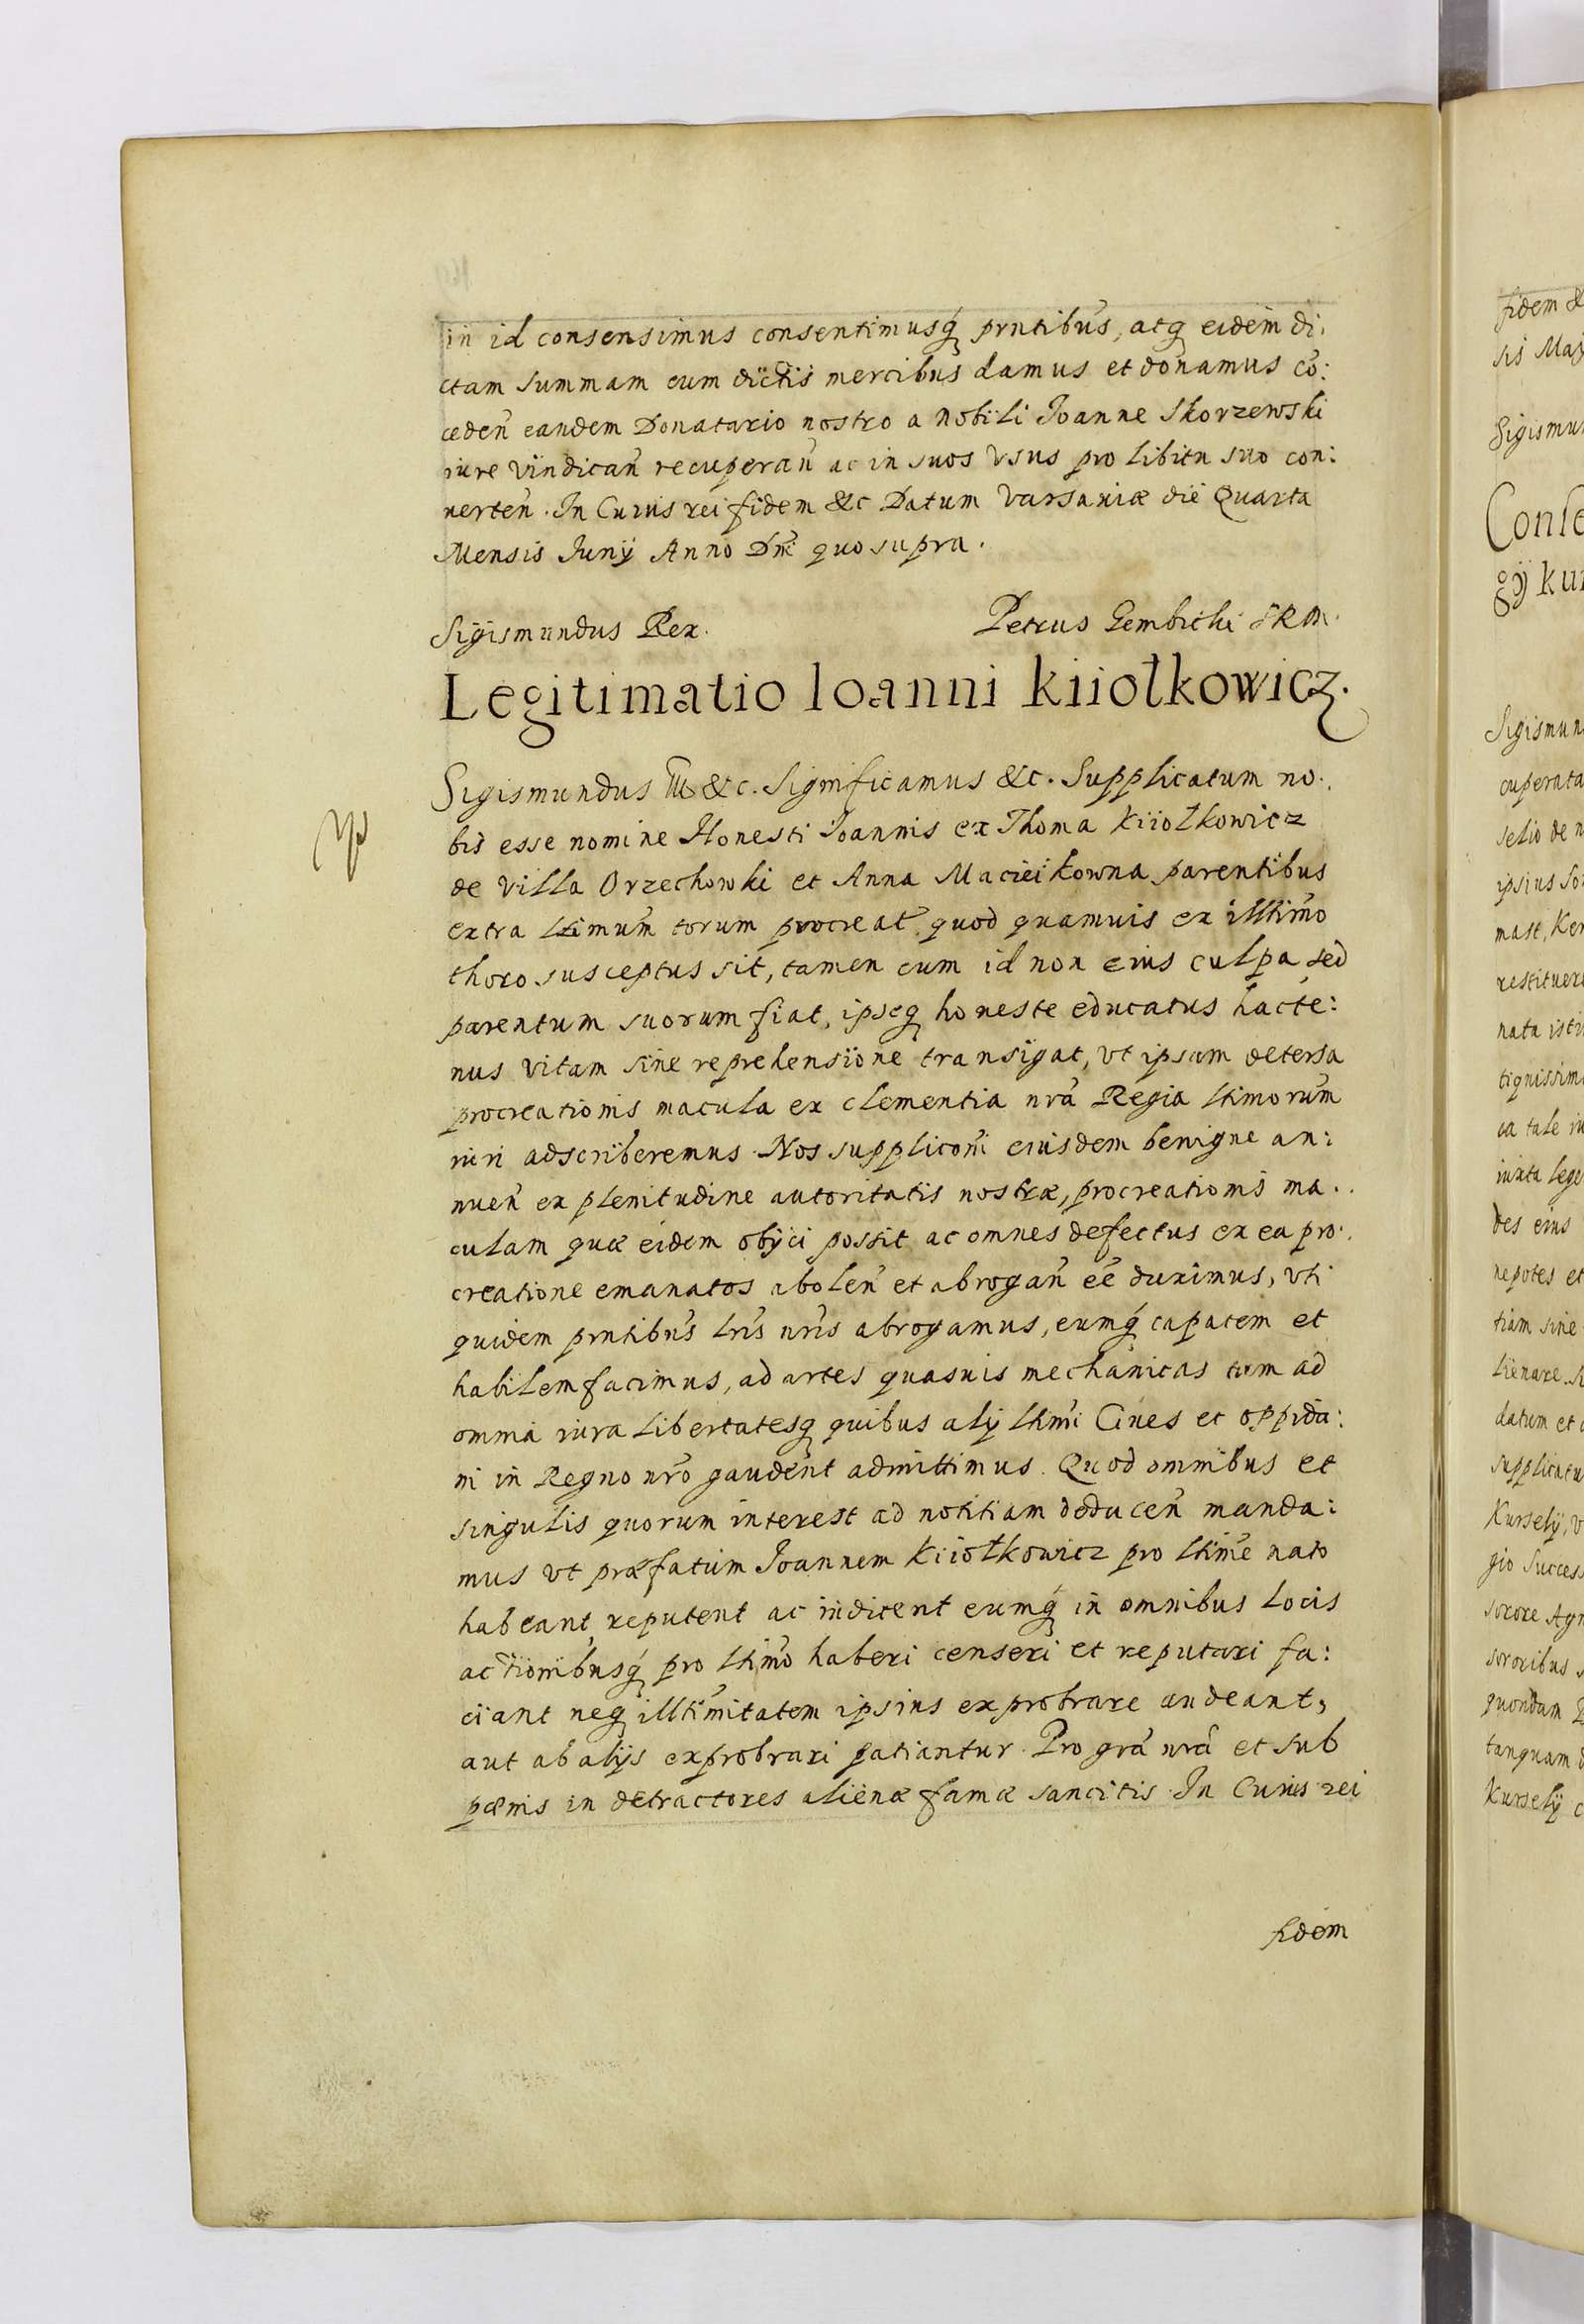 in id consensimus consentimusq́ prntibus, atq eidem di:
ctam summam cum dictis mercibus damus et donamus cō:
ceden̄ eandem Donatario nostro a Nobili Joanne Skorzewski
iure vindican̄ recuperan̄ ac in suos vsus pro libitu suo con:
uerten̄. In Cuius rei fidem &c Datum Varsauiæ die Quarta
Mensis Junÿ Anno Dnī quo supra.
Sigismundus Rex.
Petrus Gembicki SRM.
Legitimatio Ioanni kiiołkowicz.
Sigismundus III &c. Significamus &c. Supplicatum no:
bis esse nomine Honesti Joannis ex Thoma Kiiołkowicz
de Villa Orzechowki et Anna Macieikowna parentibus
extra ltimum̄ torum procreat̄. quod quamuis ex illtimo
thoro susceptus sit, tamen cum id non eius culpa sed
parentum suorum fiat, ipseq honeste educatus hacte:
nus vitam sine reprehensione transigat, vt ipsum detersa
procreationis macula ex clementia nrā Regia ltimorum̄
iuri adscriberemus. Nos supplicōni eiusdem benigne an:
nuen̄ ex plenitudine autoritatis nostræ, procreationis ma:
culam quæ eidem obÿci possit ac omnes defectus ex ea pro:
creatione emanatos abolen̄ et abrogan̄ eē duximus, vti
quidem prntibus lris nris abrogamus, eumq́ capacem et
habilem facimus, ad artes quasuis mechanicas tum ad
omnia iura libertatesq quibus alÿ ltimi Ciues et oppida:
ni in Regno nrō gaudent admittimus. Quod omnibus et
singulis quorum interest ad notitiam deducen̄ manda:
mus vt præfatum Joannem Kiiołkowicz pro ltime nato
habeant reputent ac iudicent eumq́ in omnibus locis
actionibusq́ pro ltimo haberi censeri et reputari fa:
ciant neq illtimitatem ipsius exprobrare audeant,
aut ab alÿs exprobrari patiantur. Pro grā nrā et sub
pœnis in detractores alienæ famæ sancitis. In Cuius rei
fidem
fidem &
Sigismun
Conse
gÿ kur
Sigismun
cuperata
selio de n
ipsius
restituer
nata
tignissim
ca tale iu
iuxta lege
des eius
nepotes et
tiam sine
lienare.
datum et
supplicatu
Kurselÿ, v
gio Success
sorore Agn
sororibus
quondam
tanquam
Kurselÿ